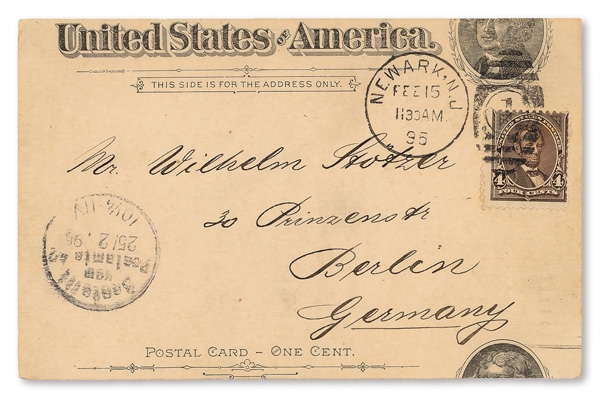 United States of America.
THIS SIDE IS FOR THE ADDRESS ONLY.
NEWARK. N.J
FEB 15
1130AM
95
4 4
FOUR CENTS
Mr. Wilhelm Stotzer
30 Prinzenstr
Berlin
Germany
Bestellt
vom
Postamte
25/2.95
POSTAL CARD – ONE CENT.